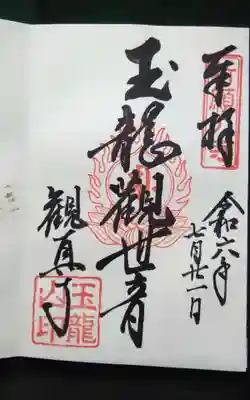 奉拝
令和六年
七月廿一日
玉龍観世音
観真寺
玉龍
山印